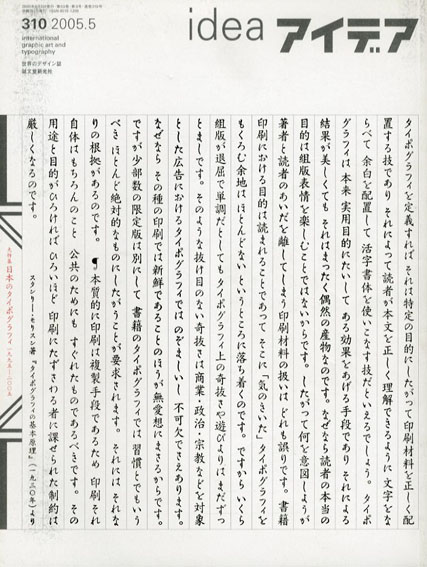 310 2005.5
international
graphic art and
typography
世界のデザイン誌
誠文堂新光社
idea アイデア
タイポグラフィを定義すれば それは特定の目的にしたがって印刷材料を正しく配
置する技であり それによって読者が本文を正しく理解できるように 文字をな
らべて 余白を配置して 活字書体を使いこなす技だといえるでしょう。タイポ
グラフィは 本来 実用目的にたいして ある効果をあげる手段であり それによる
結果が美しくても それはまったく偶然の産物なのです。なぜなら読者の本当の
目的は組版表情を楽しむことではないからです。したがって何を意図しようが
著者と読者のあいだを離してしまう印刷材料の扱いは どれも誤りです。書籍
印刷における目的は読まれることであって そこに「気のきいた」タイポグラフィを
もくろむ余地は ほとんどない というところに落ち着くのです。ですから いくら
組版が退屈で単調だとしてもタイポグラフィ上の奇抜さや遊びよりは まだずっ
とましです。そのような抜け目のない奇抜さは商業・政治・宗教などを対象
とした広告におけるタイポグラフィでは のぞましいし 不可欠でさえあります。
なぜなら その種の印刷では新鮮であることのほうが無愛想にまさるからです。
ですが少部数の限定版は別にして 書籍のタイポグラフィでは 習慣とでもいう
べき ほとんど絶対的なものにしたがうことが要求されます。 それには それな
りの根拠があるのです。 ¶ 本質的に印刷は複製手段であるため 印刷それ
自体はもちろんのこと 公共のためにも すぐれたものであるべきです。その
用途と目的がひろければ ひろいほど 印刷にたずさわる者に課せられた制約は
厳しくなるのです。
スタンリー・モリスン著『タイポグラフィの基本原理』(一九三〇年)より
大特集 日本のタイポグラフィ 一九九五—二〇〇五